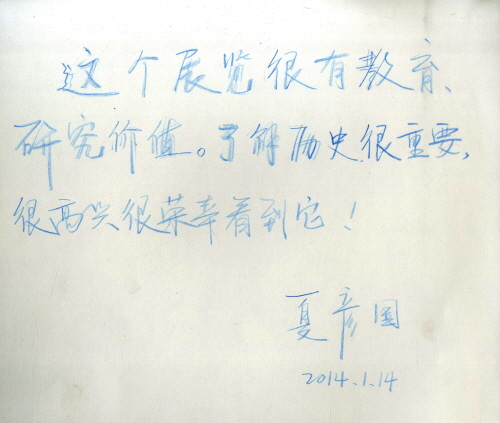 这个展览很有教育、
研究价值。了解历史很重要，
很高兴很荣幸看到它！
夏彦国
2014.1.14